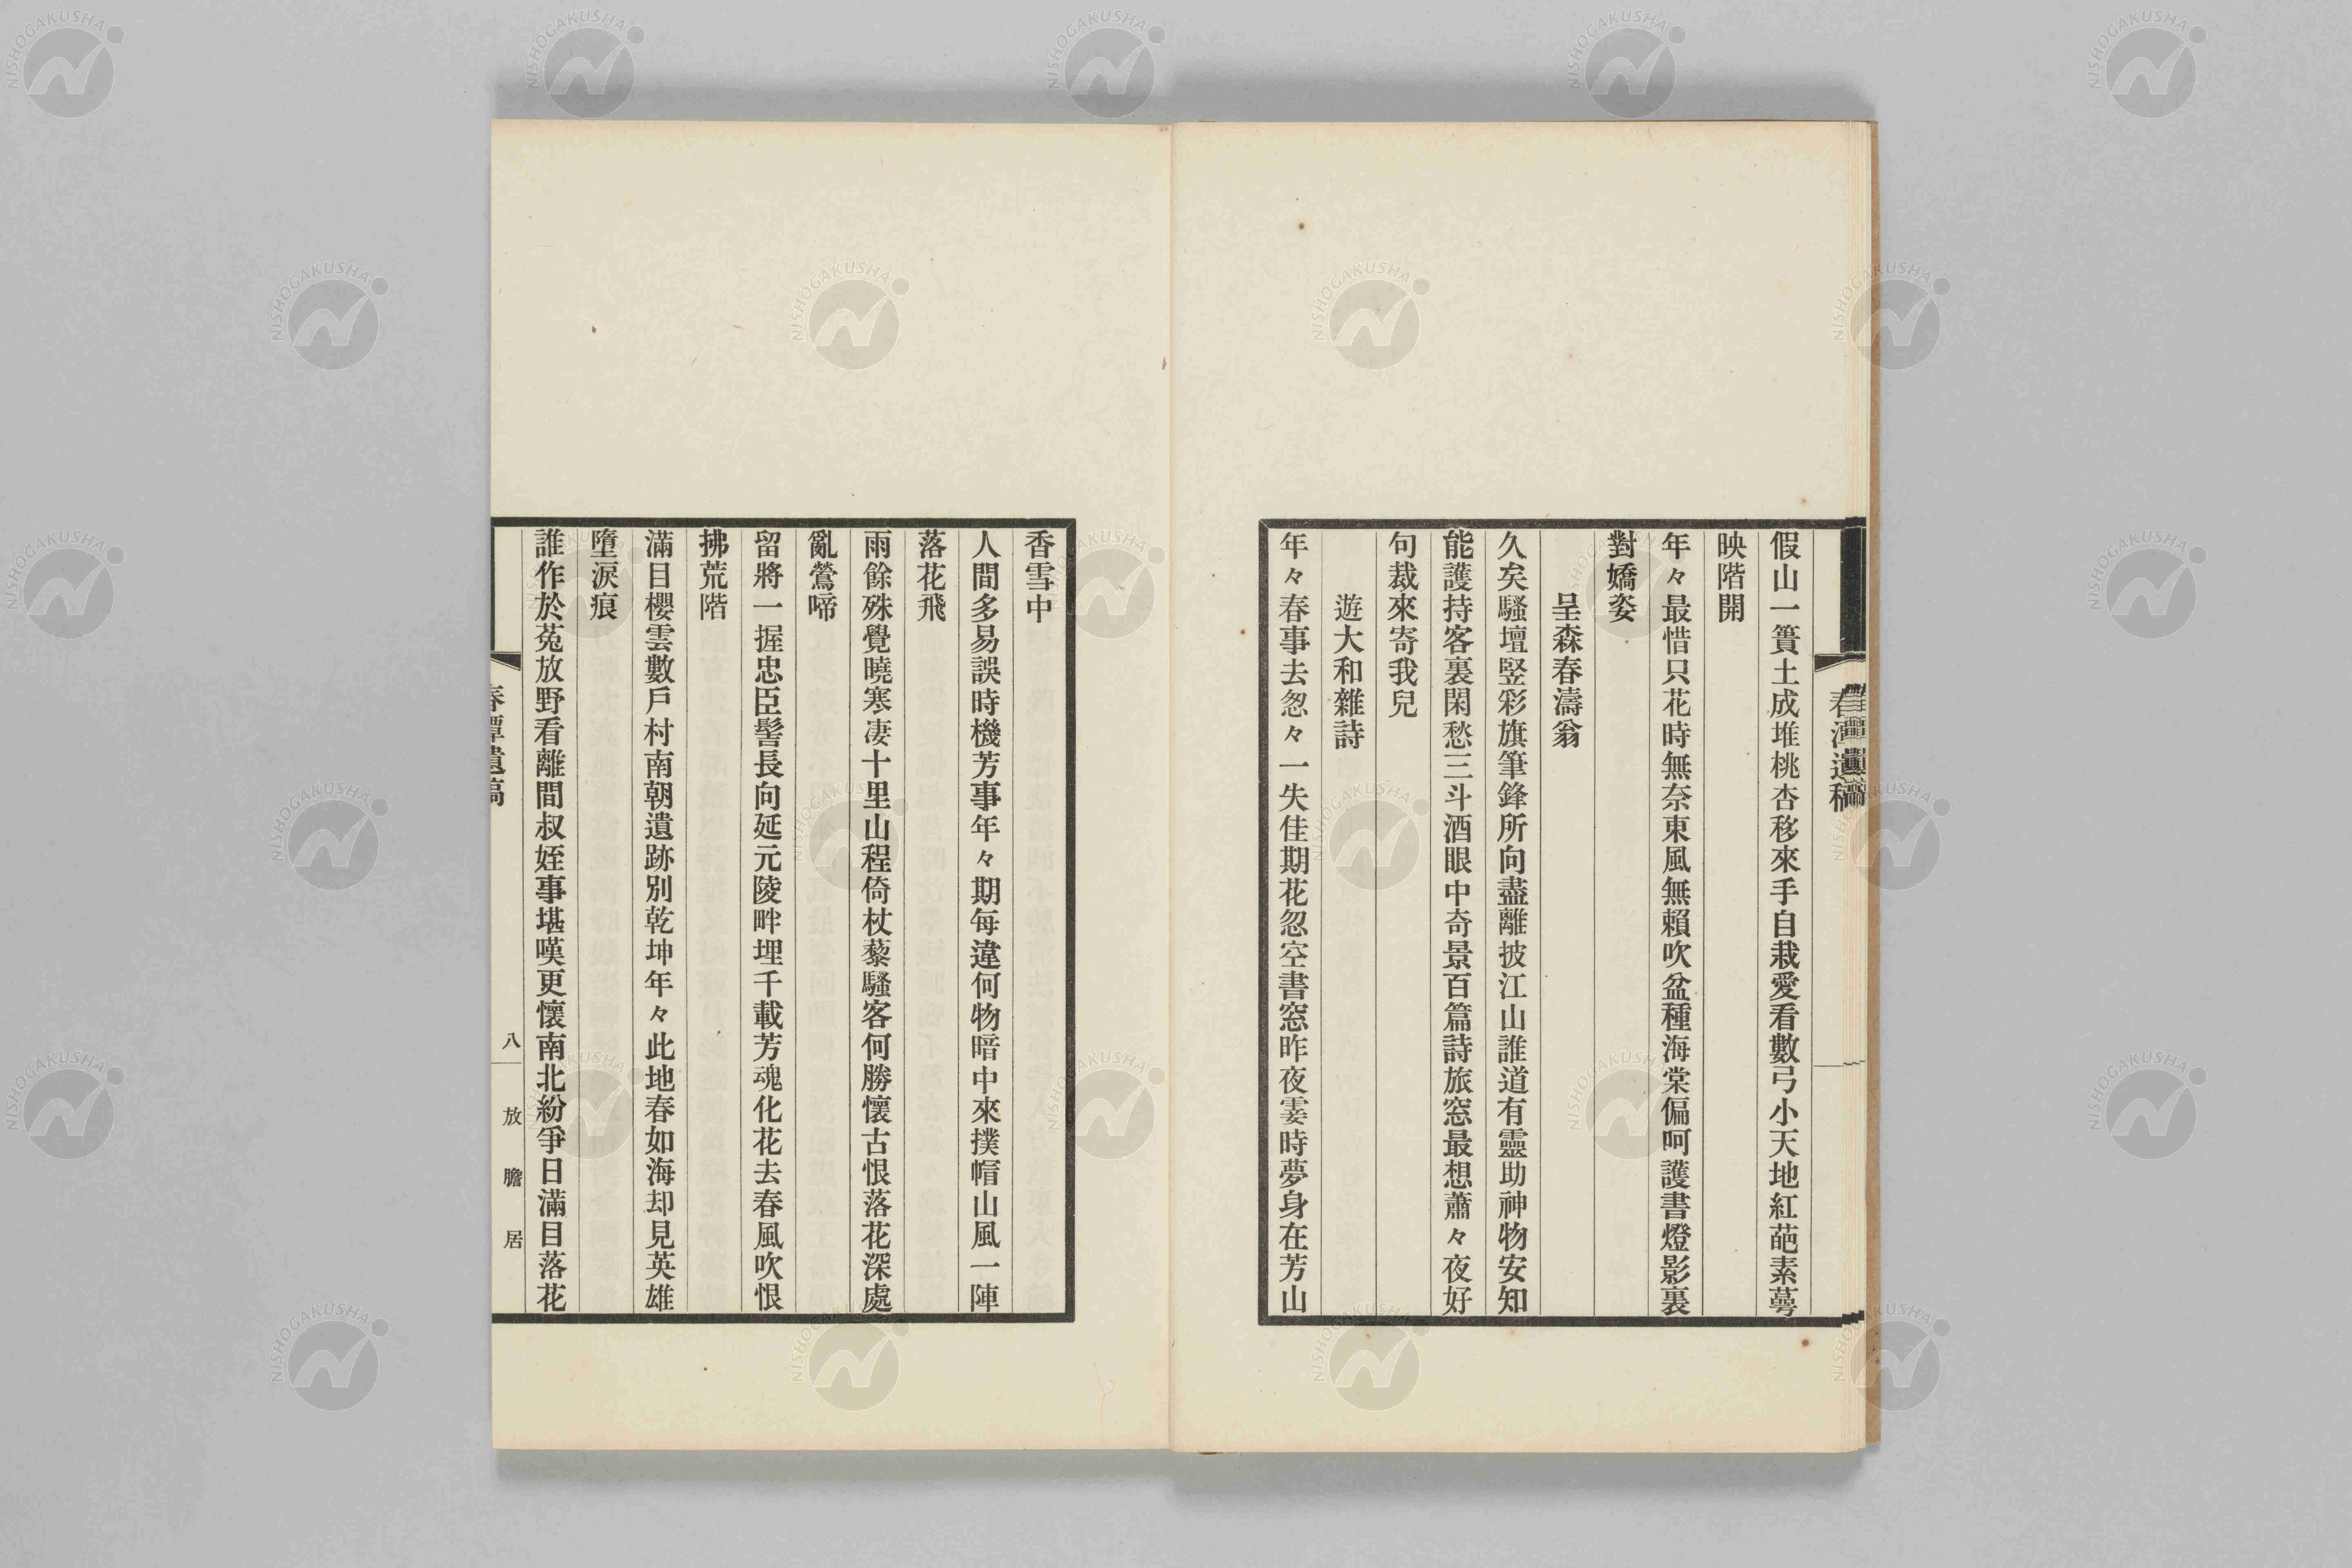 假山一簣土成堆桃杏移來手自栽愛看數弓小天地紅葩素萼
映階開
年々最惜只花時無奈東風無賴吹盆種海棠偏呵護書燈影裏
對嬌姿
呈森春濤翁
久矣騷壇竪彩旗筆鋒所向盡離披江山誰道有靈助神物安知
能護持客裏閑愁三斗酒眼中奇景百篇詩旅窓最想蕭々夜好
句裁來寄我兒
遊大和雜詩
年々春事去忽々一失佳期花忽空書窓昨夜霎時夢身在芳山
香雪中
人間多易誤時機芳事年々期每違何物暗中來撲帽山風一陣
落花飛
雨餘殊覺曉寒凄十里山程倚杖藜騷客何勝懷古恨落花深處
亂鶯啼
留將一握忠臣髻長向延元陵畔埋千載芳魂化花去春風吹恨
拂荒階
滿目櫻雲數戶村南朝遺跡別乾坤年々此地春如海却見英雄
墮淚痕
誰作於菟放野看離間叔姪事堪嘆更懷南北紛爭日滿目落花
春潭遺稿
八
放膽居
NISHOGAKUSHA